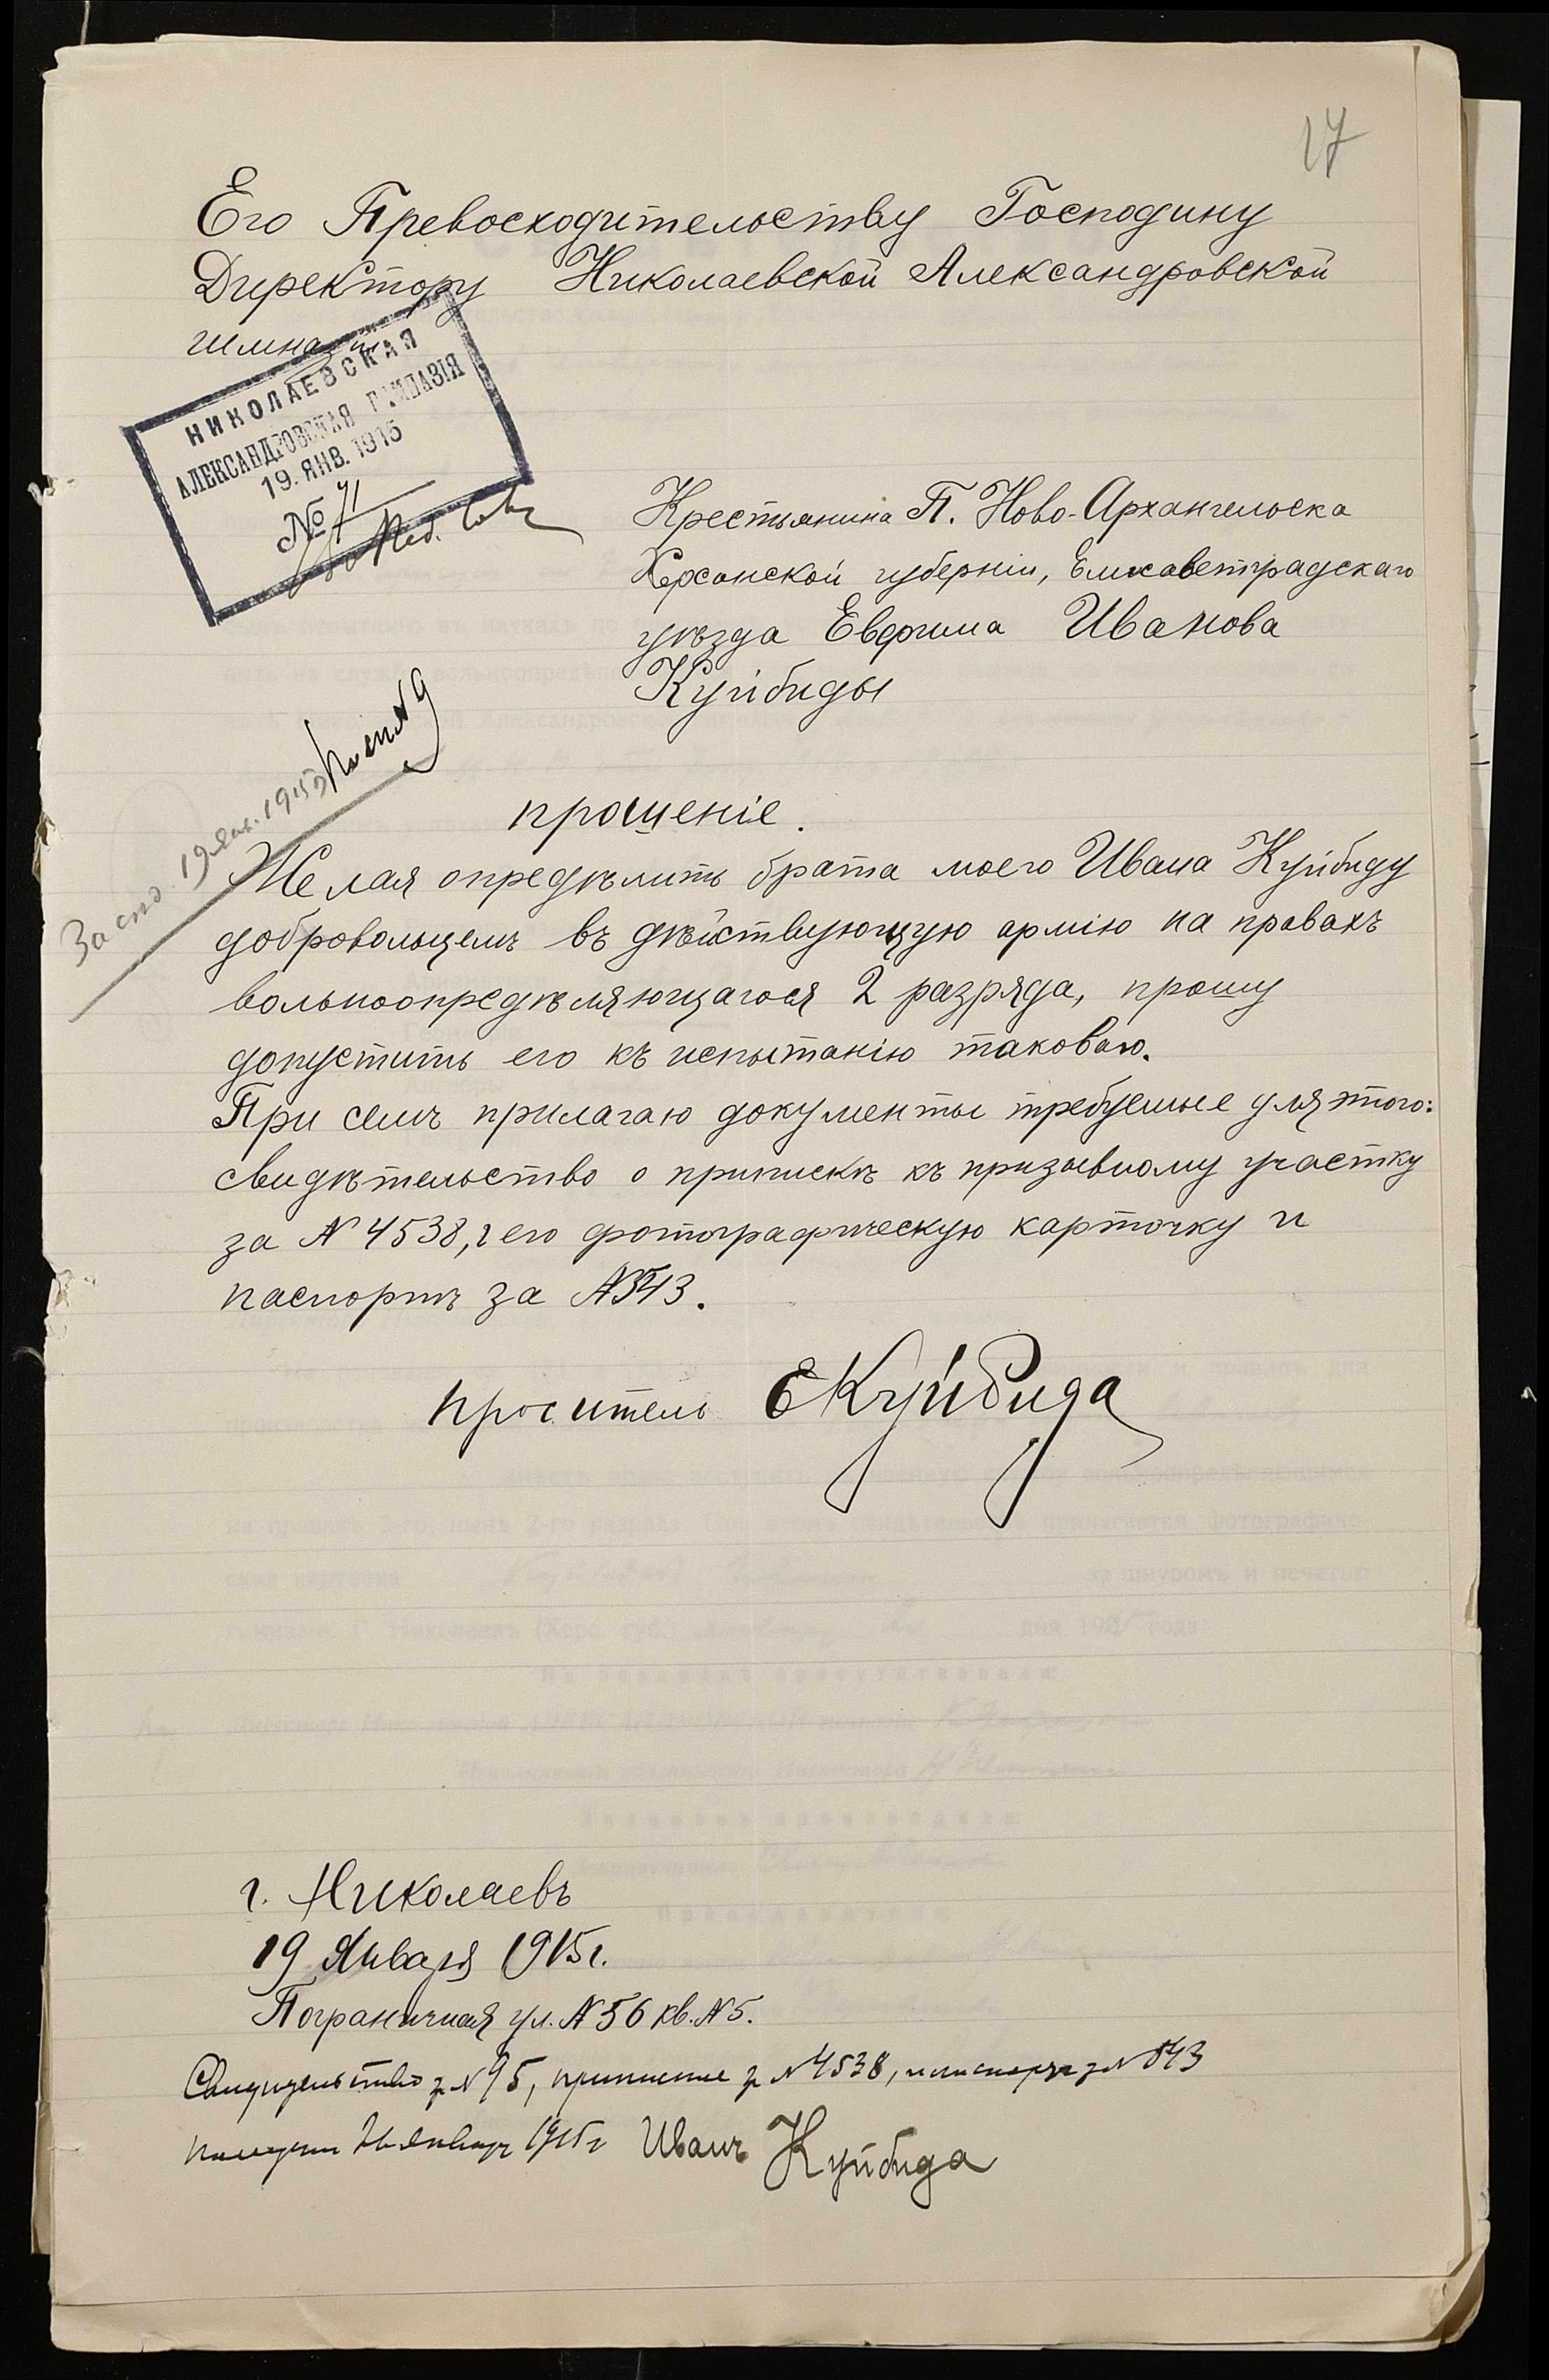 17
Его Превосходительству Господину
Директору Николаевской Александровской
гимназіи
НИКОЛАЕВСКАЯ
АЛЕКСАНДРОВСКАЯ ГИМНАЗІЯ
19. ЯНВ. 1915
№ 71
Крестьянина П. Ново-Архангельска
Херсонской губерніи, Елисаветградскаго
уѣзда Евфима Иванова
Куйбиды
прошеніе.
Желая опредѣлить брата моего Ивана Куйбиду
добровольцемъ въ дѣйствующую армію на правахъ
вольноопредѣляющагося 2 разряда, прошу
допустить его къ испытанію таковаго.
При семъ прилагаю документы требуемые для этого:
свидѣтельство о припискѣ къ призывному участку
за № 4538, его фотографическую карточку и
паспортъ за № 543.
проситель ЕКуйбида
г. Николаевъ
19 Января 1915 г.
Пограничная ул. № 56 кв. № 5.
Свидѣтельство за № 95, за № 4538, за № 543
1915 г Иванъ Куйбида